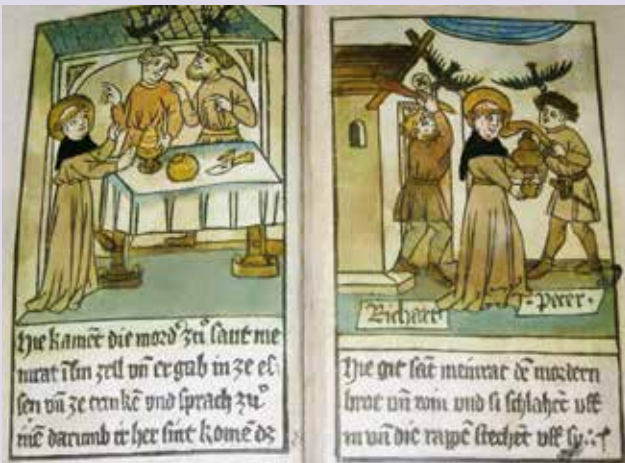 Hie kamēt die mord᷒ zuͦ sant mei
nrat in sin zell vn̄ er gab in ze es
sen vn̄ ze trinkē vnd sprach zuͦ
inē darumb ir her sint komē dz
Richart
Peter
Hie git sāt meinrat dē mordern
brot vn̄ win vnd si schlahēt vff
in vn̄ die rappē stechēt vff sy